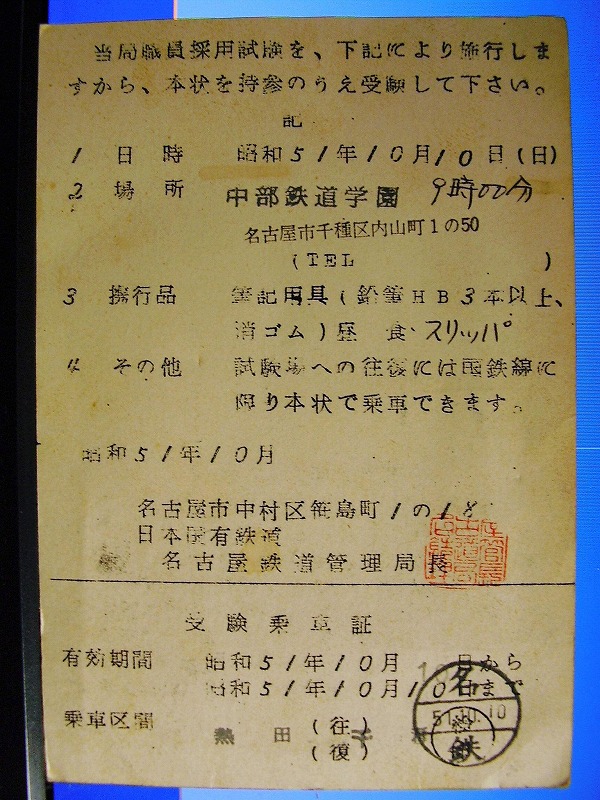 当局職員採用試験を、下記により施行しま
すから、本状を持参のうえ受験して下さい。
記
1 日時 昭和51年10月10日(日)
9時00分
2 場所 中部鉄道学園
名古屋市千種区内山町1の50
(TEL )
3 携行品 筆記用具(鉛筆HB3本以上、
消ゴム)昼食、スリッパ
4 その他 試験場への往復には国鉄線に
限り本状で乗車できます。
昭和51年10月
名古屋市中村区笹島町1の18
日本国有鉄道
名古屋鉄道管理局長
受験乗車証
有効期間 昭和51年10月 日から
昭和51年10月10日まで
乗車区間 熱田 (往)
(復)
名
51.10.10
鉄